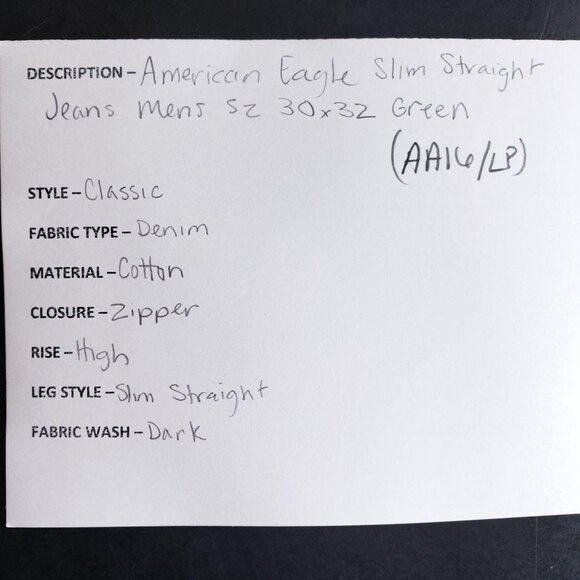 DESCRIPTION – American Eagle Slim Straight
Jeans Mens Sz 30x32 Green
(AA16/LP)
STYLE – Classic
FABRIC TYPE – Denim
MATERIAL – Cotton
CLOSURE – Zipper
RISE – High
LEG STYLE – Slim Straight
FABRIC WASH – Dark